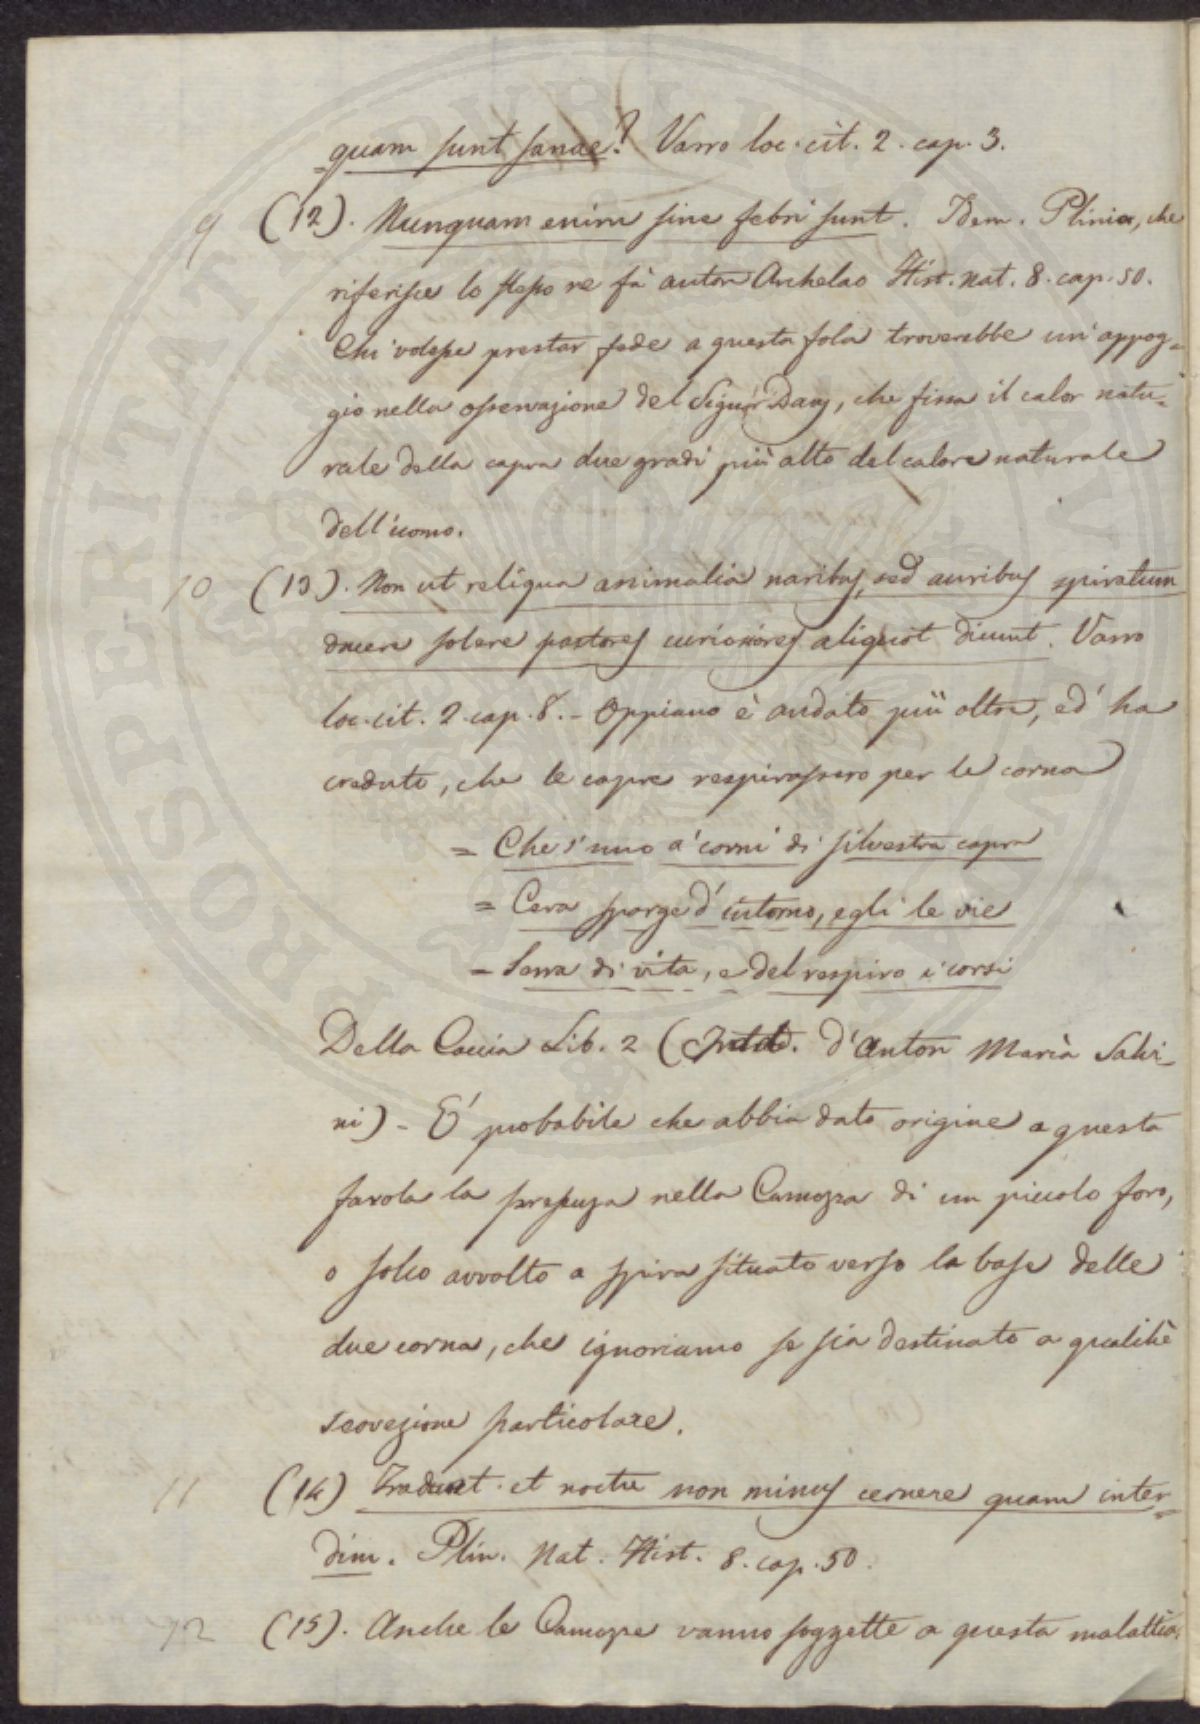 quam sunt sanae? Varro loc. cit. 2. cap. 3.
9 (12). Nunquam enim sine febri sunt. Idem. Plinio, che
riferisce lo stesso ne fà autor Archelao Hist. nat. 8. cap. 50.
Chi volesse prestar fede a questa fola troverebbe un'appog=
gio nella osservazione del Signor Davy, che fissa il calor natu=
rale della capra due gradi più alto del calore naturale
dell'uomo.
10 (13). Non ut reliqua animalia naribus, sed auribus spiratum
ducere solere pastores curiosiores aliquot dicunt. Varro
loc. cit. 2. cap. 8. - Oppiano è andato più oltre, ed ha
creduto, che le capre respirassero per le corna
= Che s'uno a' corni di silvestra capra
= Cera sparge d'intorno, egli le vie
= Serra di vita, e del respiro i corsi
Della Caccia Lib. 2 ( d'Anton Maria Salvi=
ni) - E' probabile che abbia dato origine a questa
favola la presenza nella Camozza di un piccolo foro,
o solco avvolto a spira situato verso la base delle
due corna, che ignoriamo se sia destinato a qualche
secrezione particolare.
11 (14) Tradunt et noctu non minus cernere quam inter=
diu. Plin. Nat. Hist. 8. cap. 50.
12 (15). Anche le Camozze vanno soggette a questa malattia.